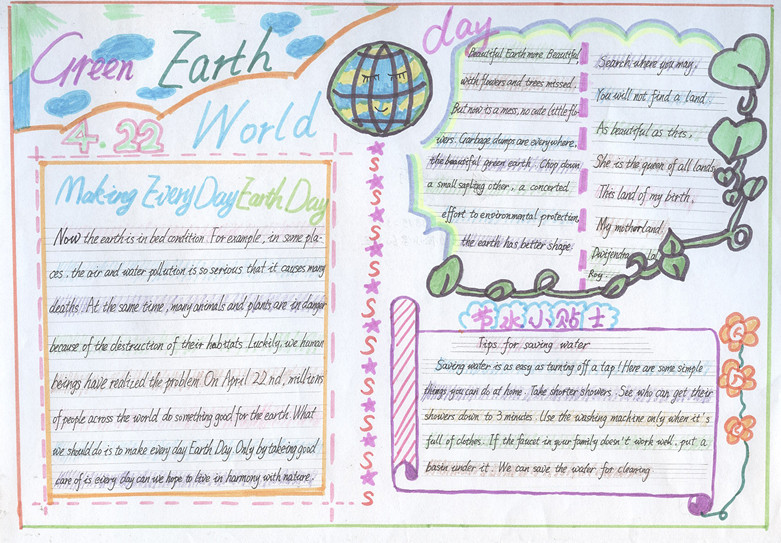 Green Earth
day
4.22 World
Making Every Day Earth Day
Now the earth is in bed condition. For example, in some pla-
ces, the air and water pollution is so serious that it causes many
deaths. At the same time, many animals and plants are in danger
because of the destruction of their habitats. Luckily, we human
beings have realized the problem. On April 22 nd, millions
of people across the world do something good for the earth. What
we should do is to make every day Earth Day. Only by takeing good
care of is every day can we hope to live in harmony with nature.
S
S
S
S
S
S
S
S
S
S
S
Beautiful Earth more. Beautiful,
with flowers and trees missed.
But now is a mess, no cute little flo-
wers. Garbage dumps are everywhere,
the beautiful green earth. Chop down
a small sapling other, a concerted
effort to environmental protection
the earth has better shape.
Search where you may,
You will not find a land
As beautiful as this,
She is the queen of all lands
This land of my birth,
My motherland.
Dwijendra Lal
Roy
节水小贴士
Tips for saving water
Saving water is as easy as turning off a tap! Here are some simple
things you can do at home. Take shorter showers. See who can get their
showers down to 3 minutes. Use the washing machine only when it's
full of clothes. If the faucet in your family doesn't work well, put a
basin under it. We can save the water for clearing